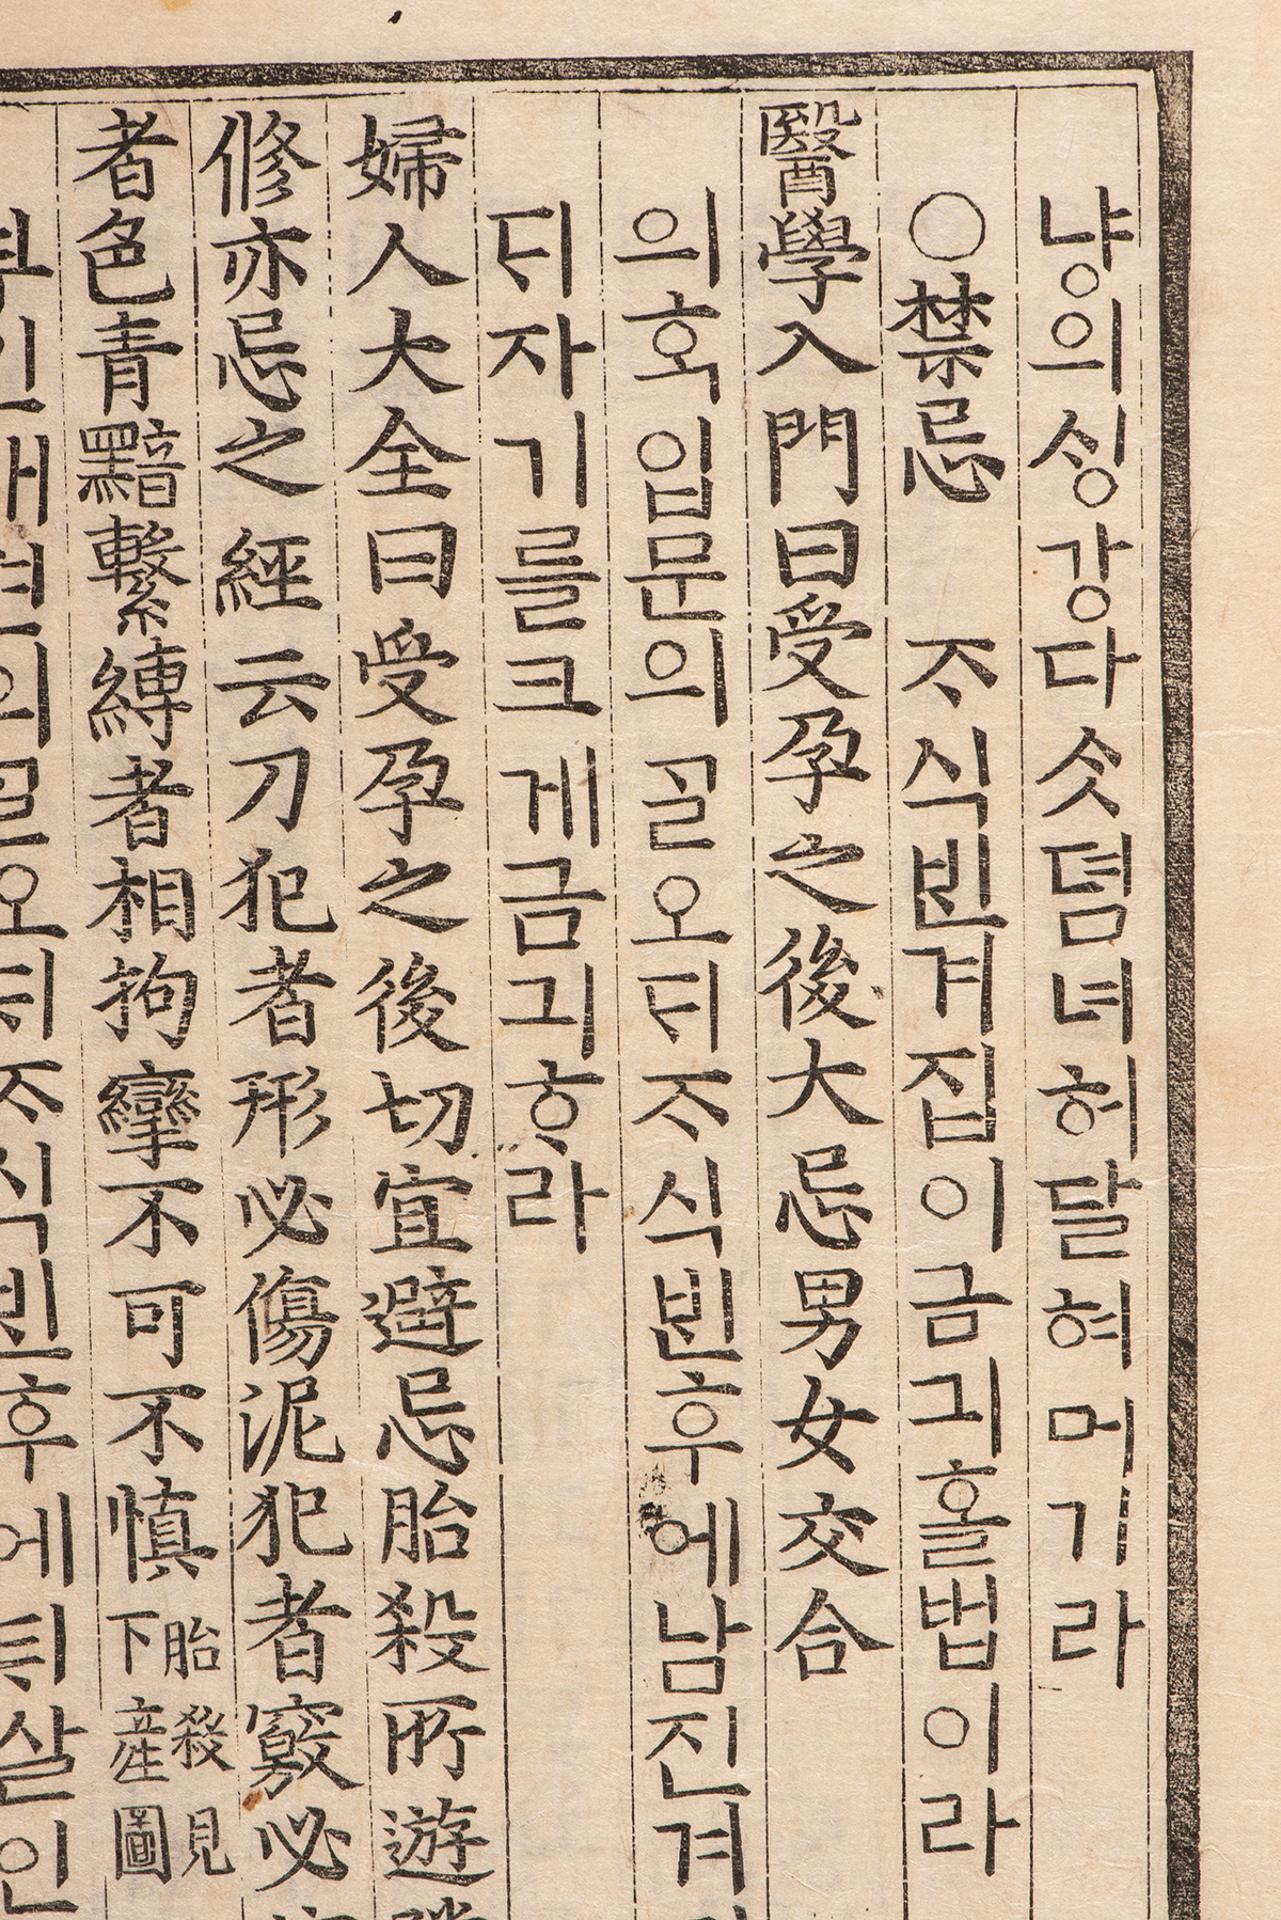 냥의싱강다ᄉᆞᆺ뎜녀허달혀머기라
○禁忌 ᄌᆞ식ᄇᆡᆫ겨집이금긔홀법이라
醫學入門曰受孕之後大忌男女交合
의혹입문의골오ᄃᆡᄌᆞ식ᄇᆡᆫ후에남진겨
ᄃᆡ자기를크게금긔ᄒᆞ라
婦人大全曰受孕之後切宜避忌胎殺所遊
修亦忌之經云刀犯者形必傷泥犯者竅必
者色青黯繫縛者相拘攣不可不慎胎殺見下産圖
부인대젼의골오ᄃᆡᄌᆞ식ᄇᆡᆫ후에ᄐᆡ살인